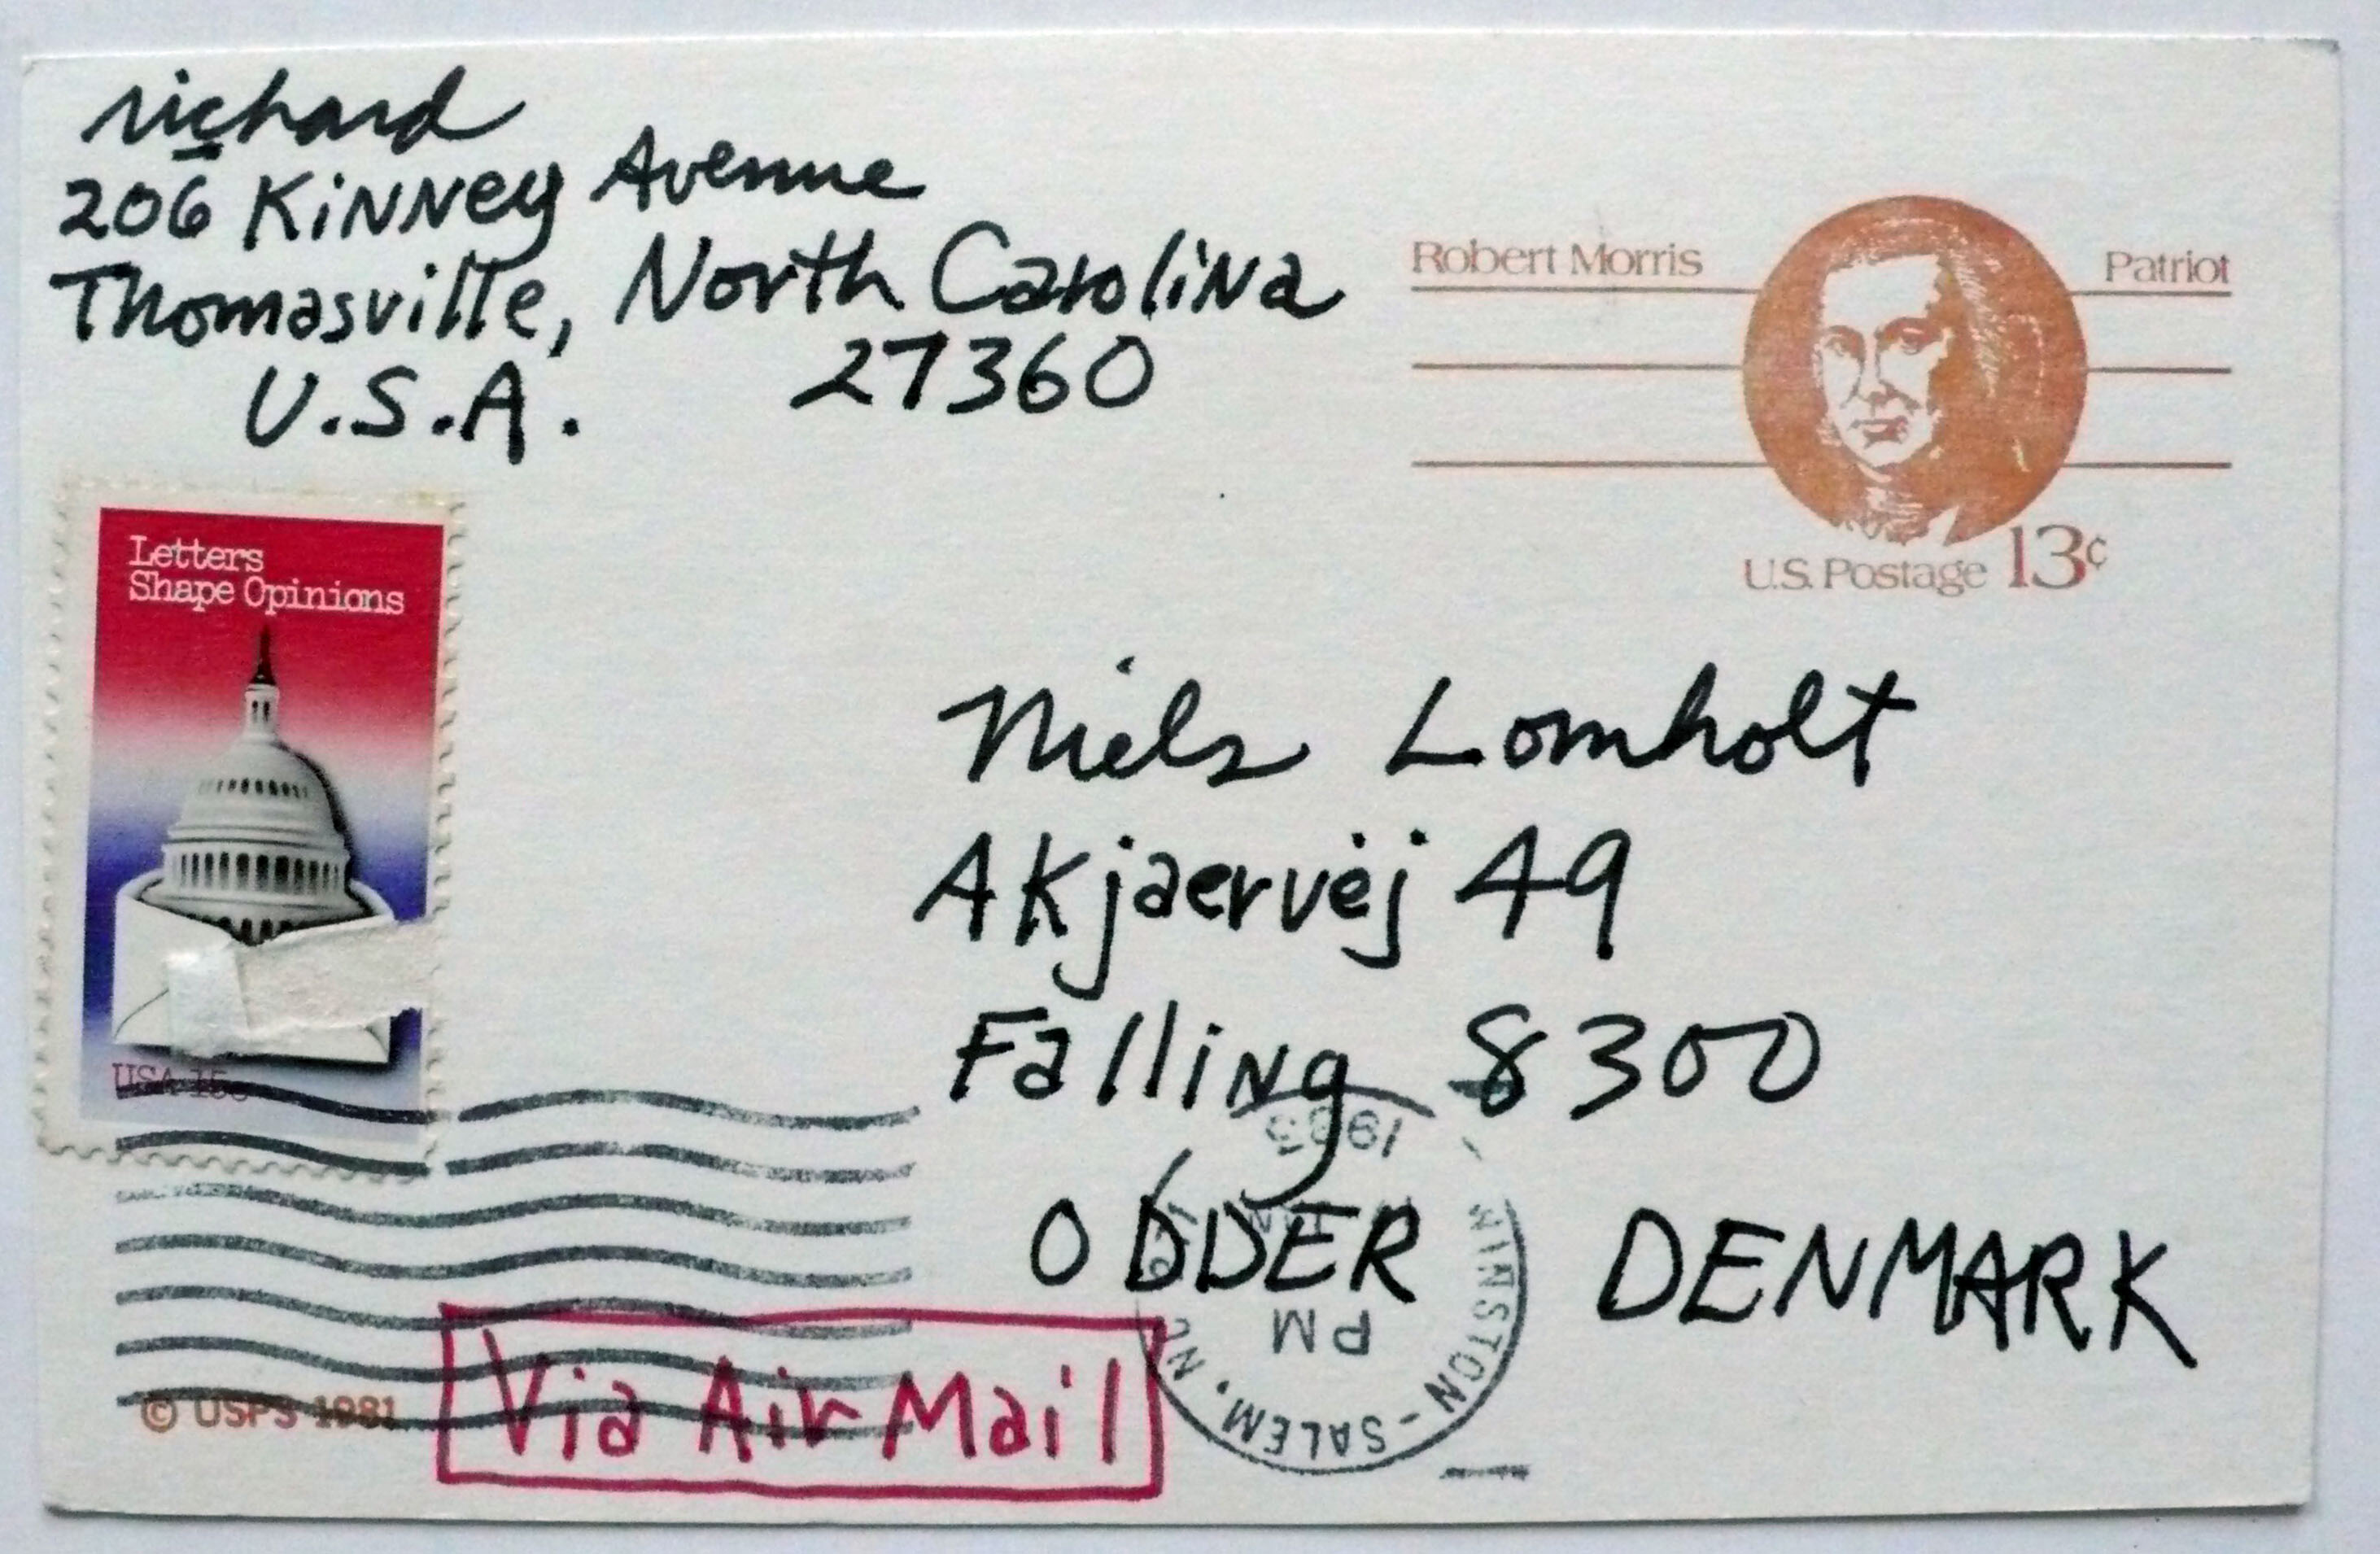 richard
206 Kinney Avenue
Thomasville, North Carolina
27360
U.S.A.
Robert Morris
Patriot
U.S. Postage 13¢
Letters
Shape Opinions
USA 15c
Niels Lomholt
Akjaervej 49
Falling 8300
ODDER DENMARK
WINSTON-SALEM, NC
PM
1983
Via Air Mail
© USPS 1981